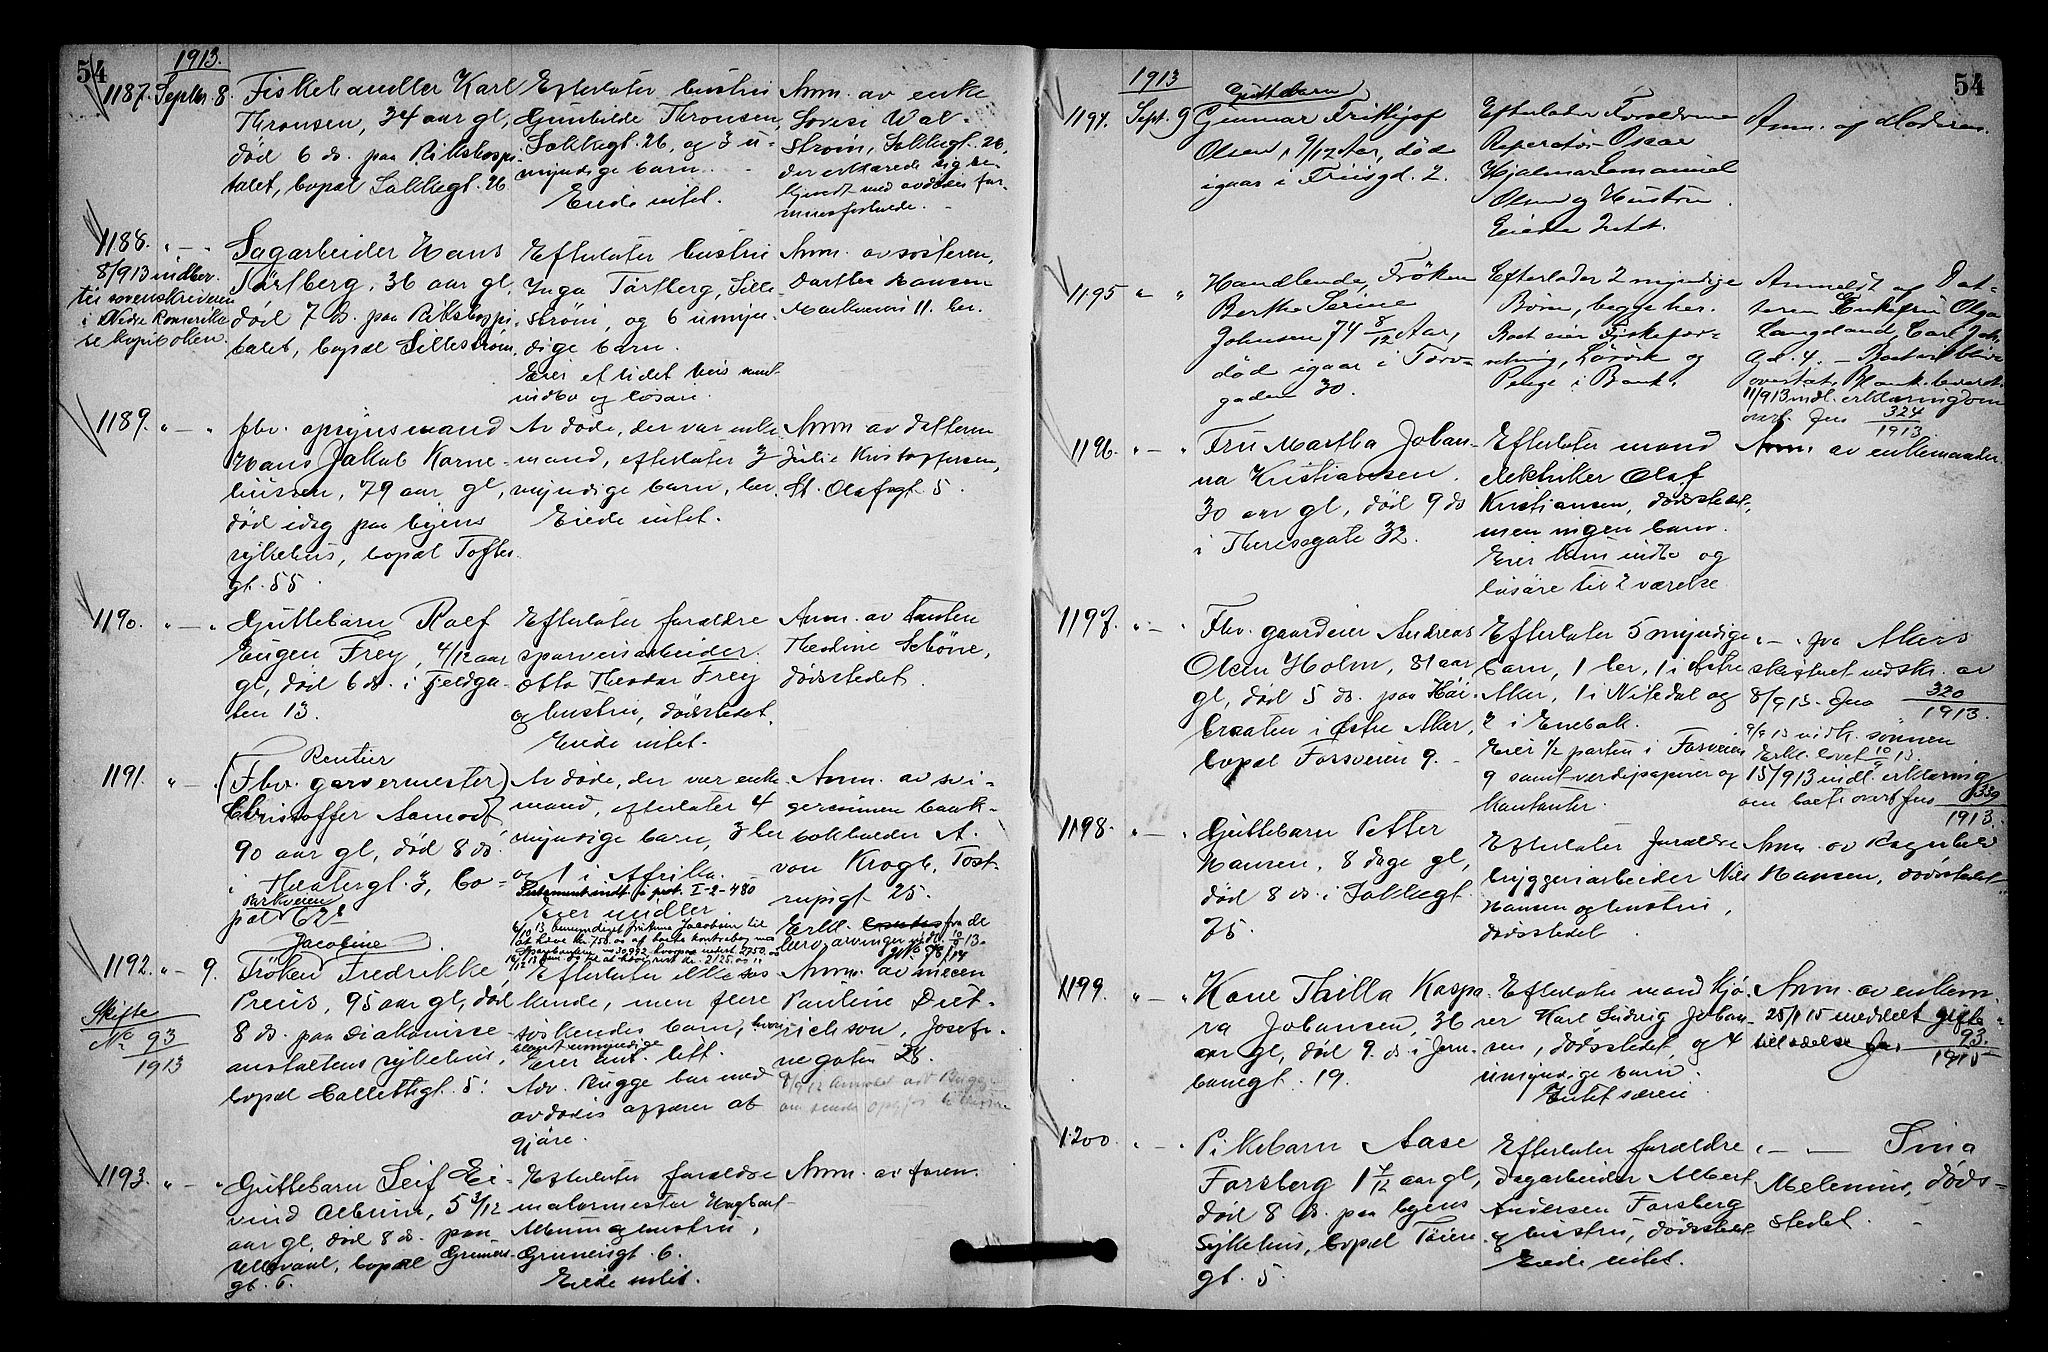 54
1913.
1187. Septbr. 8. Fiskehandler Karl
Thronsen, 34 aar gl,
død 6 ds. paa Rikshospi-
talet, bopæl Sakkegt. 26
Efterlater hustru
Gunhilde Thronsen,
Sakkegt. 26, og 3 u-
myndige barn.
Eiede intet.
Anm. av enke
Lovise Wal-
strøm, Sakkegt. 26,
der erklærede sig be-
kjendt med avdødes for-
muesforholde.
1188. " — " Sagarbeider Hans
Tärtberg, 36 aar gl,
død 7 ds. paa Rikshospi-
talet, bopæl Lillestrøm.
8/9 13 indber.
til sorenskriveren
i Nedre Romerike
se kopiboken.
Efterlater hustru
Inga Tärtberg, Lille-
strøm, og 6 umyn-
dige barn.
Eier et litet hus samt
indbo og løsøre.
Anm. av søsteren,
Darthea Hansen
Markveien 11. her.
1189. " — " fhv. opsynsmand
Hans Jakob Karne-
liussen, 79 aar gl,
død idag paa byens
sykehus, bopæl Tofte-
gt. 55.
Av døde, der var enke-
mand, efterlater 3
myndige barn, her.
Eiede intet.
Anm av datteren
Julie Kristoffersen,
St. Olafsgt. 5.
1190. " — " Guttebarn Rolf
Eugen Frey, 4/12 aar
gl, død 6 ds. i Fjeldga-
ten 13.
Efterlater forældre
sporveisarbeider
Otto Theodor Frey
og hustru, dødsstedet.
Eiede intet.
Anm. av tanten
Theoline Schøne,
dødsstedet.
1191. " — " Rentier
(Fhv. garvermester)
Christoffer Aamodt
90 aar gl, død 8 ds.
i Theatergt. 3, bo-
pæl Parkveien 62
Av døde, der var enke-
mand, efterlater 4
myndige barn, 3 her
og 1 i Afrika.
Testament indt i prot. I-2-480
Eier midler.
Anm. av svi-
gersønnen bank-
bokholder A.
von Krogh, Tost-
rupsgt 25.
Erkl. fra de
herv. arvinger
1192. " — 9. Jacobine
Frøken Fredrikke
Preus, 95 aar gl, død
8 ds. paa Diakonisse-
anstaltens sykehus,
bopæl Collettsgt. 5.
Skifte
No 93
1913
Efterlater ikke søs
kende, men flere
søskendes barn, hvori-
blandt umyndige
Eier ant. litt.
Adv. Bugge har med
avdødes affærer at
gjøre.
Anm. av niecen
Pauline Diet-
richson, Josefi-
negaten 28.
1193. " — " Guttebarn Leif Ei-
vind Album, 5 3/12
aar gl, død 8 ds. paa
Ullevaal, bopæl Grüners-
gt. 6.
Efterlater forældre
malermester Hagbart
Album og hustru,
Grünersgt. 6.
Eiede intet.
Anm. av faren.
54
1913
1194. Sept. 9 Guttebarn
Gunnar Fritkjof
Olsen, 9/12 Aar, død
igaar i Friisgd. 2.
Efterlader Forældrene
Reperatør Oscar
Hjalmar Emanuel
Olsen og Hustru.
Eiede Intet.
Anm. og Moderen.
1195 " " Handlende, Frøken
Berthe Serine
Johnsen 74 8/12 Aar,
død igaar i Torv-
gaden 30.
Efterlader 2 myndige
Børn, begge her.
Boet eier Fiskefor-
retning, Løsøre og
Penge i Bank.
Anmeldt og Dat-
teren Enkefru Olga
Langeland, Carl Joh.
Gd. 4. — Boet vil blive
overtat. Blank. leveret.
11/9 13 indl. erklæring om
overt. Jns 324
1913.
1196. " — " Fru Martha Johan-
na Kristiansen.
30 aar gl, død 9 ds
i Theresegate 32.
Efterlater mand
elektriker Olaf
Kristiansen, dødsstedet,
men ingen barn.
Eier kun indbo og
løsøre til 2 værelse
Anm. av enkemanden
1197. " — " Fhv. gaardeier Andreas
Olsen Holm, 81 aar
gl, død 5 ds. paa Høi-
braaten i Østre Aker,
bopæl Forsveien 9.
Efterlater 5 myndige
barn, 1 her, 1 i Østre
Aker, 1 i Nitedal og
2 i Enebak.
Eier 1/2 parten i Forsveien
9 samt verdipapirer og
kontanter.
" — " fra Akers
skifteret ved skr. av
8/9 13. Jns 320
1913.
9/9 13 sønnen
Erkl. lovet
15/9 13 indl. erklæring
om boets overt Jns 339
1913.
1198. " — " Guttebarn Petter
Hansen, 8 dage gl,
død 8 ds. i Sakkegt
75.
Efterlater forældre
bryggeriarbeider Nils
Hansen og hustru,
dødsstedet
Anm. av Ragnhild
Hansen, dødsstedet
1199. " — " Kone Thilla Kaspa-
ra Johansen, 36
aar gl, død 9. ds i Jern-
banegt. 19.
Efterlater mand kjø-
rer Karl Ludvig Johan-
sen, dødsstedet, og 4
umyndige barn.
Intet særeie.
Anm. av enkem.
25/1 15 meddelt gifte-
tilladelse Jns. 93.
1915
1200. " — " Pikebarn Aase
Forsberg 1 7/12 aar gl,
død 8 ds. paa byens
sykehus, bopæl Tøien-
gt. 5.
Efterlater forældre
dagarbeider Albert
Andersen Forsberg
og hustru, dødsstedet
Eiede intet.
" — " Sina
Melenius, døds-
stedet.